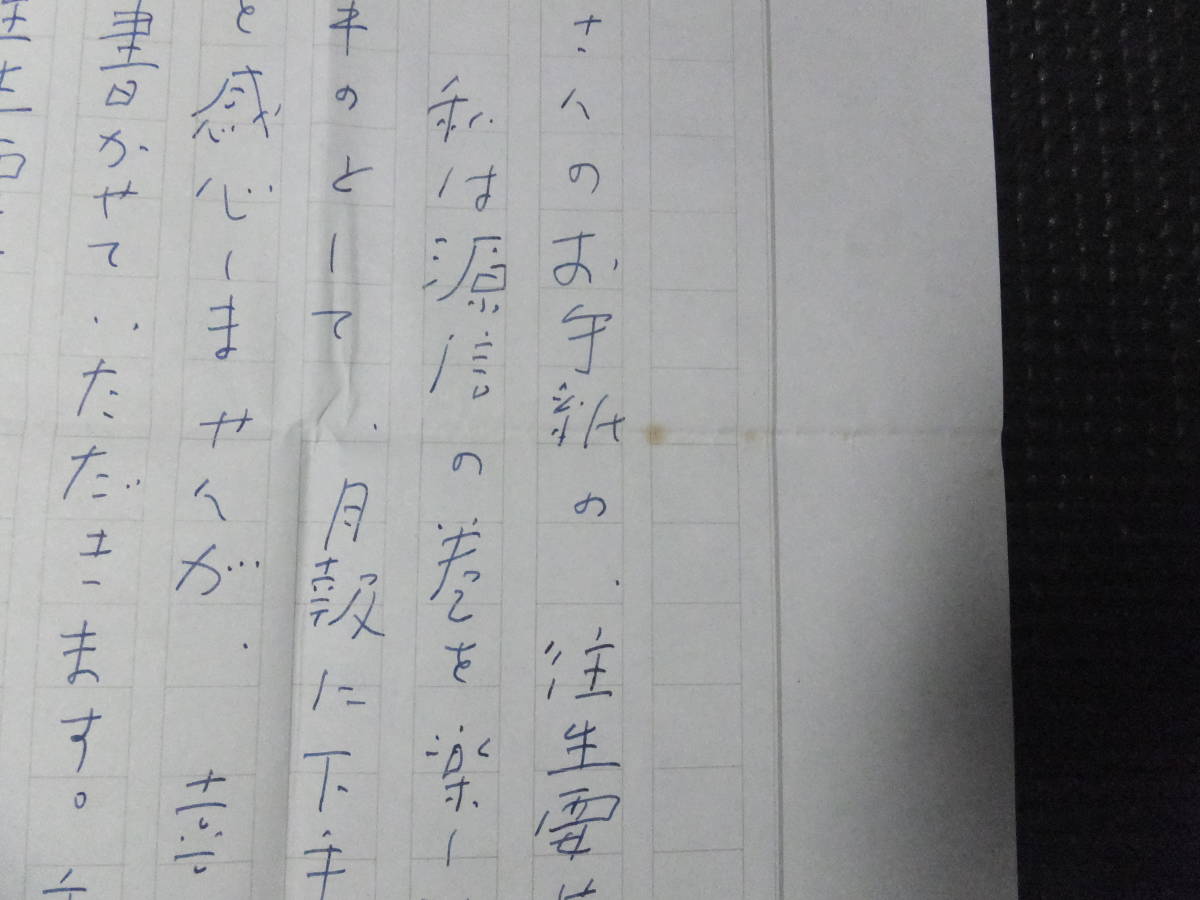 さんのお手紙の、往生要せ
私は源信の巻を楽し
手のとして、月報に下手
と感じませんが、喜
書かせていただきます。